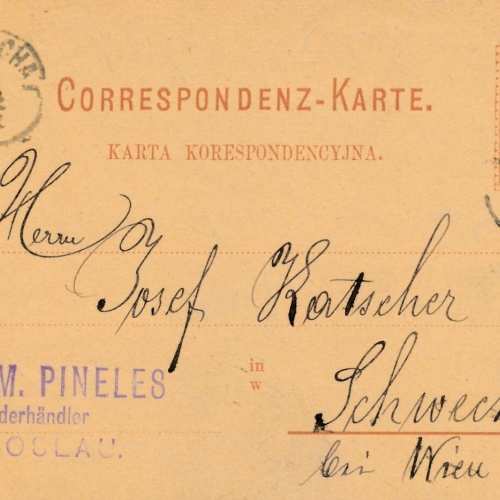 CHA
CORRESPONDENZ-KARTE.
KARTA KORESPONDENCYJNA.
Herrn
Josef Katscher
in
w
Schwech
bei Wien
M. PINELES
derhändler
OSLAU.